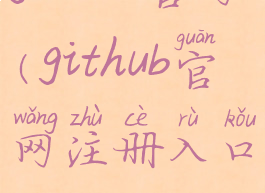 (github官
guān
网注册入口
wǎng zhù cè rù kǒu